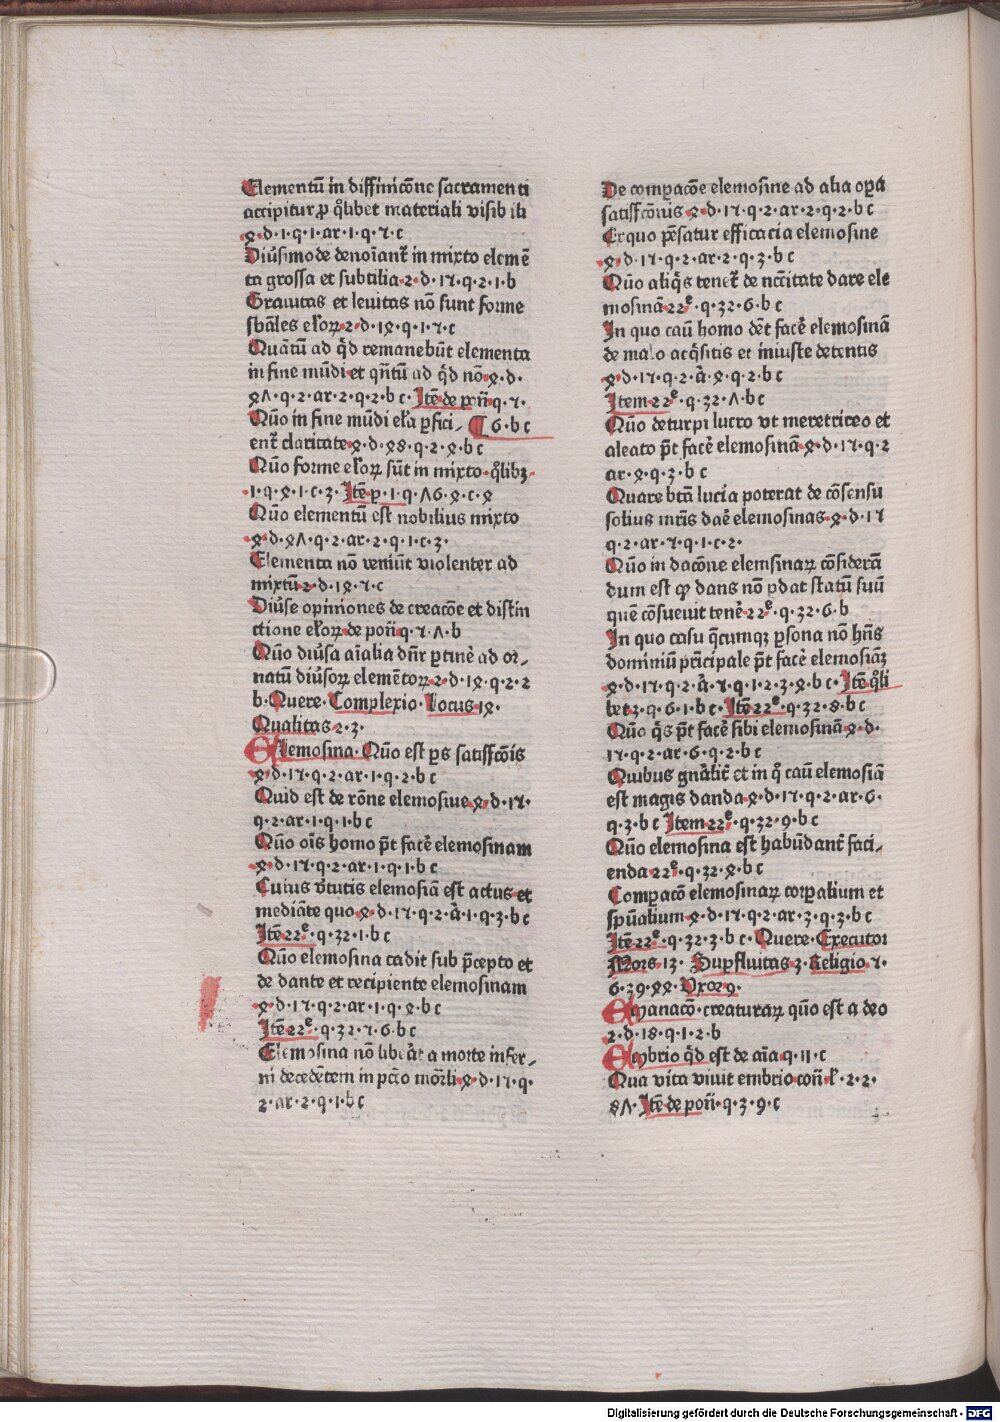 Elementū in diffinicōne sacramenti
accipitur ꝓ qͦlibet materiali visibili
4·d·1·q·1·ar·1·q·7·c
Diūsimode denoīant᷑ in mixto elemē
ta grossa et subtilia·2·d·17·q·2·1·b
Grauitas et leuitas nō sunt forme
sbāles elꝛoꝝ·2·d·14·q·1·7·c
Quātū ad qͥd remanebūt elementa
in fine mūdi et qn̄tū ad qͥd nō·4·d·
47·q·2·ar·2·q·2·b c· Itē de pōn̄ q·7·
Quō in fine mūdi elā ꝑfici, ¶ 6·b c
ent᷑ claritate·4·d·48·q·2·4·b c
Quō forme eloꝝ sūt in mixto·qͦlibꝫ·
·1·q·4·1·c·3· Itē p·1·q·76·4·c·4
Quō elementū est nobilius mixto
4·d·47·q·2·ar·2·q·1·c·3·
Elementa nō veniūt violenter ad
mixtū·2·d·14·7·c
Diūse opiniones de creacōe et distin
ctione eloꝝ·de pōn̄·q·7·7·b
Quō diūsa aīalia dn̄r ꝑtinē ad or,
natū diūsoꝝ elemētoꝝ·2·d·14·q·2·2
b· Quere· Complexio· Locus 14·
Qualitas·2·3·
Elemosina· Quō est ꝑs satisfcōis
4·d·17·q·2·ar·1·q·2·b c
Quid est de rōne elemosiue·4·d·17·
q·2·ar·1·q·1·b c
Quō oīs homo pt̄ facē elemosinam
4·d·17·q·2·ar·1·q·1·b c
Cuius v̄tutis elemosiā est actus et
mediāte quo·4·d·17·q·2·ā·1·q·3·b c
Itē 22ͤ·q·32·1·b c
Quō elemosina cadit sub p̄cepto et
de dante et recipiente elemosinam
4·d·17·q·2·ar·1·q·4·b c
Itē 22ͤ·q·32·7·6·b c
Elemosina nō libēat a morte infer,
ni decedētem in pctō mor̄li·4·d·17·q·
2·ar·2·q·1·b c
De compacōe elemosine ad alia oꝑa
satisfcōnis·4·d·17·q·2·ar·2·q·2·b c
Ex quo pēsatur efficacia elemosine
4·d·17·q·2·ar·2·q·3·b c
Quō aliqͥs tenet᷑ de nc̄citate dare ele
mosinā·22ͤ·q·32·6·b c
In quo caū homo dēt facē elemosinā
de malo acqͥsitis et iniuste detentis
4·d·17·q·2·ā·4·q·2·b c
Item 22ͤ·q·32·7·b c
Quō de turpi lucro vt meretriceo et
aleato pt̄ facē elemosinā·4·d·17·q·2
ar·4·q·3·b c
Quare btā lucia poterat de cōsensu
solius mr̄is daē elemosinas·4·d·17
q·2·ar·7·q·1·c·2·
Quō in dacōne elemsinaꝝ cōsiderā
dum est ꝙ dans nō ꝑdat statū suū
quē cōsueuit tenē·22ͤ·q·32·6·b
In quo casu qͣcumqꝫ ꝑsona nō hn̄s
dominiū pͥncipale pt̄ facē elemosiāꝫ
4·d·17·q·2·ā·7·q·1·2·3·4·b c· Itē qͦli
bet 3·q·6·1·b c· Itē 22ͤ·q·32·8·b c
Quō qͥs pt̄ facē sibi elemosinā·4·d·
17·q·2·ar·6·q·2·b c
Quibus gn̄alit᷑ et in qͦ caū elemosiā
est magis danda·4·d·17·q·2·ar·6·
q·3·b c Item 22ͤ·q·32·9·b c
Quō elemosina est habūdant᷑ faci,
enda·22ͤ·q·32·4·b c
Compacō elemosinaꝝ corꝑalium et
spūalium·4·d·17·q·2·ar·3·q·3·b c
Itē 22ͤ·q·32·3·b c· Quere· Executor
Mors 13· Suꝑfluitas 3·Religio 7·
6·39·44· Vxor 9·
Emanacō·creaturaꝝ quō est a deo
2·d·18·q·1·2·b
Embrio qͥd est de aīa·q·11·c
Qua vita viuit embrio·cōn̄·l·2·2·
47· Itē de pōn̄·q·3·9·c
Digitalisierung gefördert durch die Deutsche Forschungsgemeinschaft - DFG